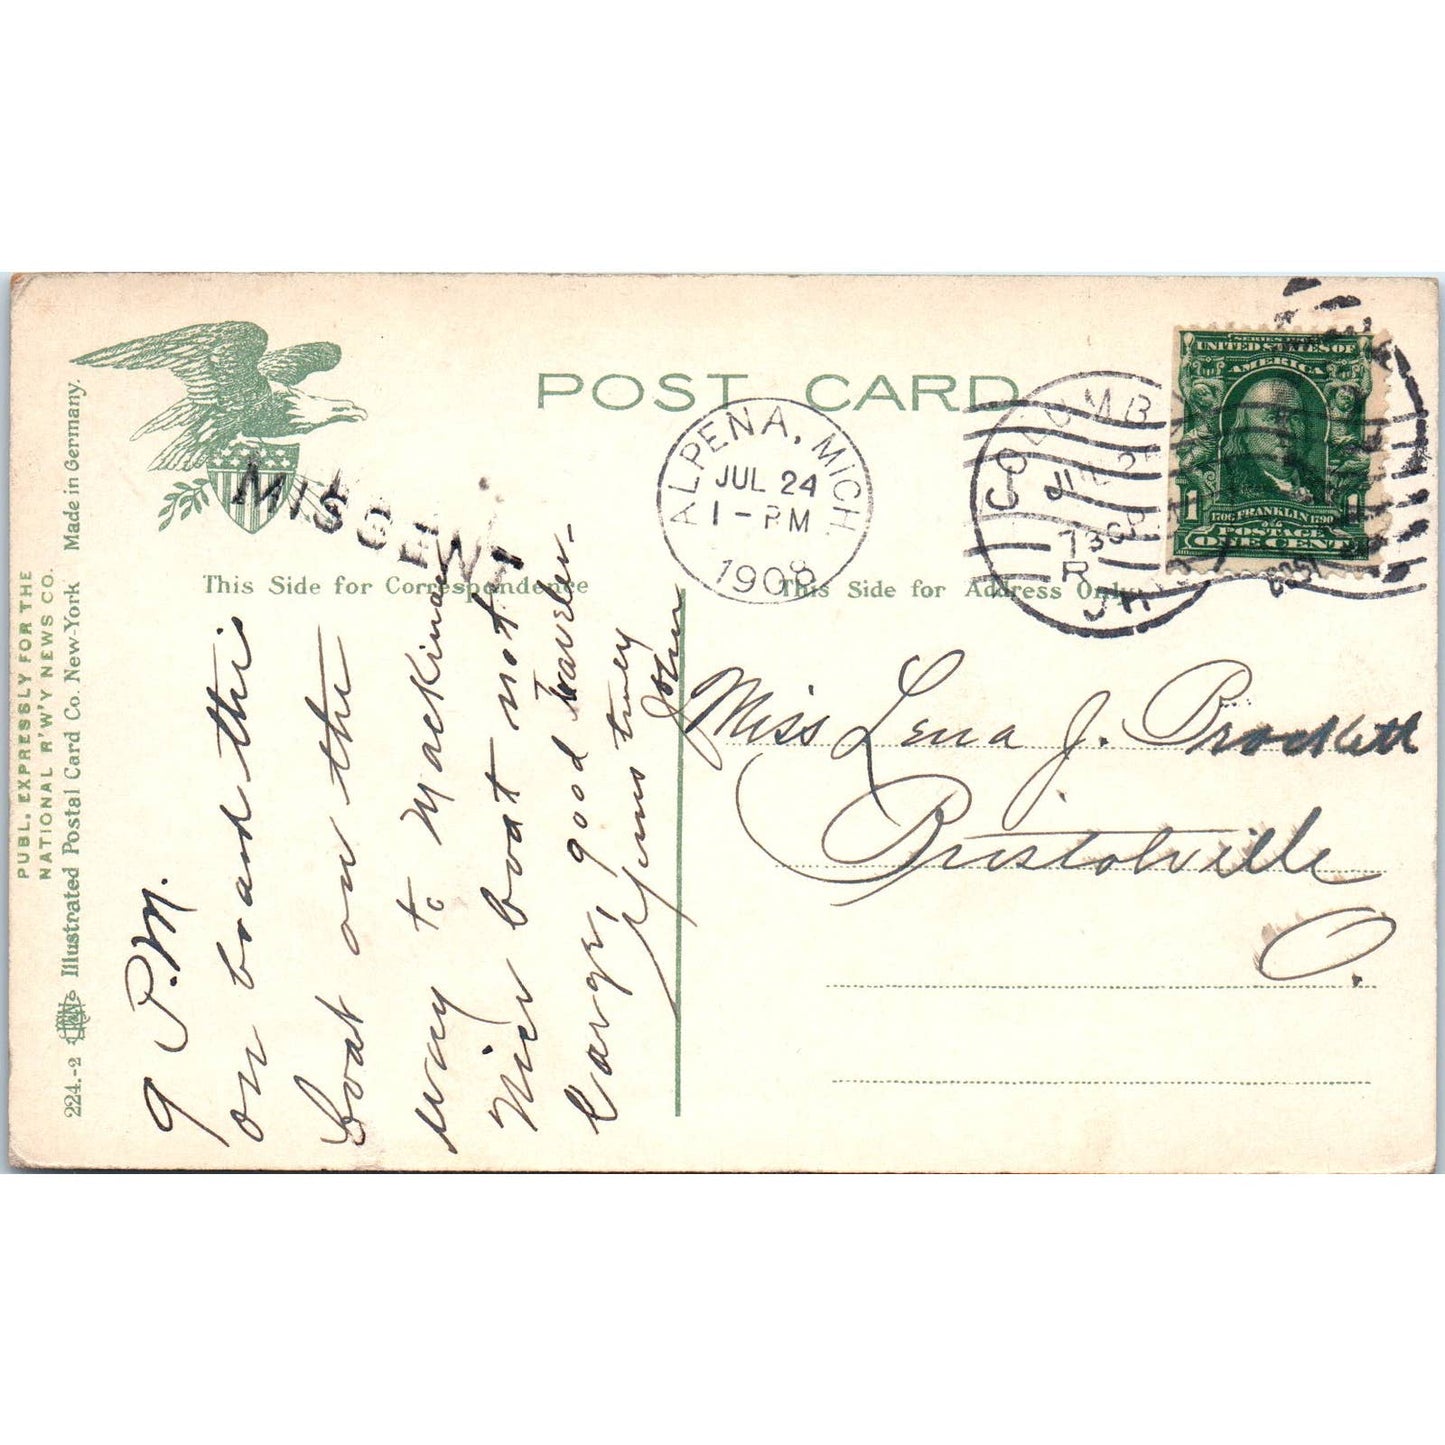 POST CARD
This Side for Correspondence
This Side for Address Only
PUBL. EXPRESSLY FOR THE
NATIONAL R'W'Y NEWS CO.
224.-2 Illustrated Postal Card Co. New-York Made in Germany.
MISSENT
ALPENA, MICH.
JUL 24
1-PM
1908
COLUMB
JUL 2
730P
R
SERIES 1902
UNITED STATES OF
AMERICA
1 1
1706 FRANKLIN 1790
POSTAGE
ONE CENT
9 P.M.
on board this
boat on the
way to Mackinaw
Nice boat not
large, good traveler.
Yours truly
John
Miss Lena J. Brockett
Bristolville
O.